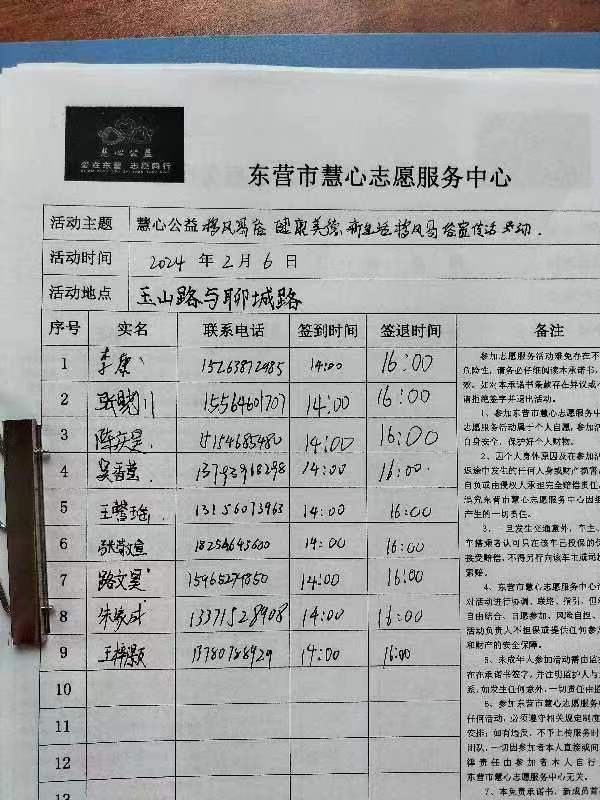 慧心公益
爱在东营 志愿同行
东营市慧心志愿服务中心
活动主题 慧心公益移风易俗 健康美德 新生活移风易俗宣传活动.
活动时间 2024 年 2 月 6 日
活动地点 玉山路与聊城路
序号 实名 联系电话 签到时间 签退时间 备注
1 李康 15263872985 14:00 16:00
2 张晓川 15564601707 14:00 16:00
3 陈庆昊 15154685480 14:00 16:00
4 吴香莹 13793968298 14:00 16:00.
5 王馨瑶 13156073963 14:00 16:00
6 张敬宣 18254643600 14:00 16:00
7 路文昊 15965274850 14:00 16:00
8 朱家成 13371528908 14:00 16:00
9 王梓灏 13780788929 14:00 16:00
10
11
12
13
参加志愿服务活动难免存在不
危险性,请务必仔细阅读本承诺书,
效。如对本承诺书条款存在异议或不
请拒绝签字并退出活动。
1、参加东营市慧心志愿服务中心
志愿服务活动属于个人自愿,参加活
自身安全、保护好个人财物。
2、因个人身体原因及在参加活
返途中发生的任何人身或财产损害
自负或由侵权人承担完全赔偿责任,
追究东营市慧心志愿服务中心因组
产生的一切责任。
3、一旦发生交通意外,车主、
车搭乘者认可只在该车已投保的保
接受赔偿,不得另行向该车主或司
索赔。
4、东营市慧心志愿服务中心
对活动进行协调、联络、指引,但
自由结合、自愿参加、风险自担、
活动负责人不担保或提供任何参
和财产的安全保障。
5、未成年人参加活动需由监
在在承诺书签字,并注明监护人与
系,如发生任何意外,一切责任由监
6、参加东营市慧心志愿服务中
任何活动,必须遵守相关规定制度
安排;如有违反,不予上传服务时
团队,一切因参加者本人直接或间
律责任由参加者本人自行
东营市慧心志愿服务中心无关。
7、本免责承诺书,新成员首